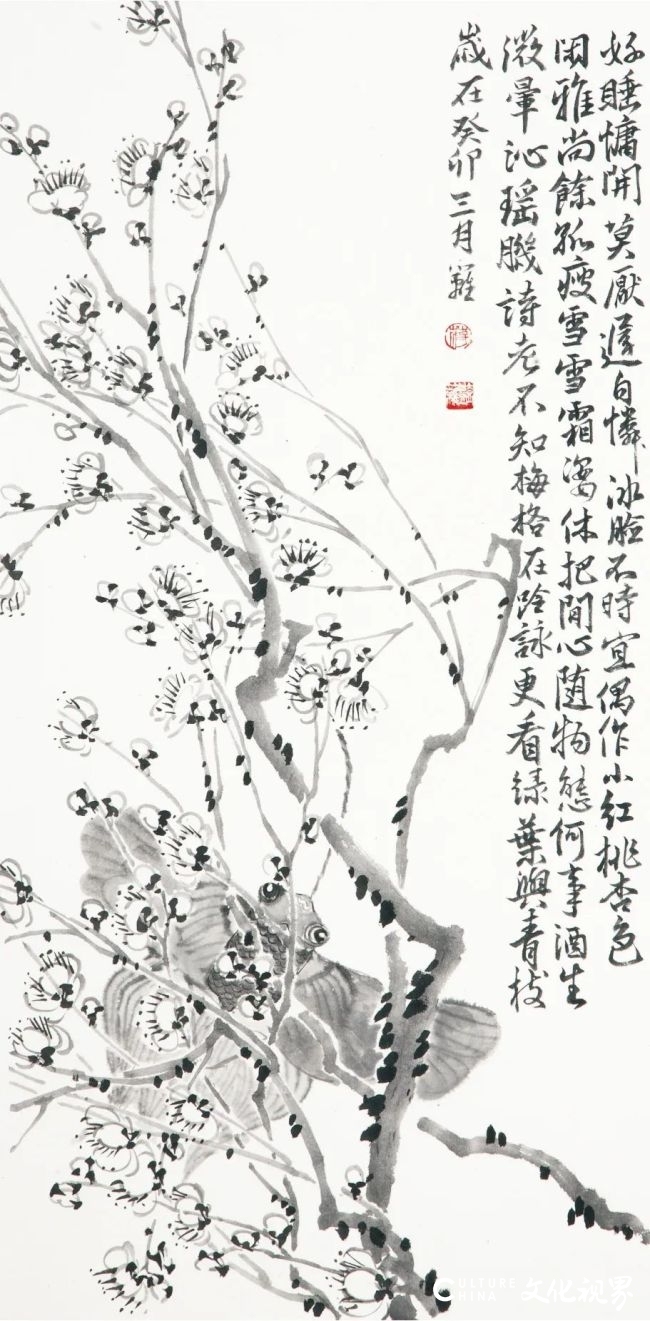 好睡慵開莫厭遲自憐冰臉不時宜偶作小紅桃杏色
闲雅尚餘孤瘦雪雪霜姿休把閒心随物態何事酒生
微暈沁瑶肌詩老不知梅格在吟詠更看緑葉與青枝
歲在癸卯三月
CULTURE
CHINA
文化视界